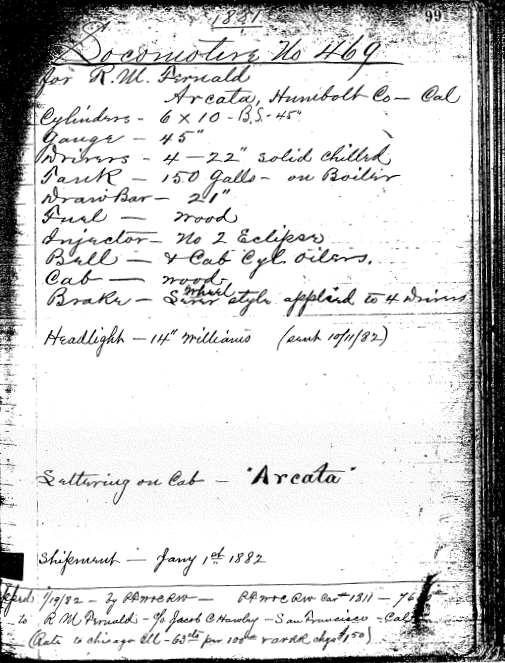 1881
99
Locomotive No 469
for R. M. Fernald
Arcata, Humbolt Co - Cal
Cylinders - 6 x 10 - B.S. - 45"
Gauge - 45"
Drivers - 4 - 22" solid chilled
Tank - 150 Galls - on Boiler
Draw Bar - 21"
Fuel - wood
Injector - No 2 Eclipse
Bell - & Cab Cyl. oilers.
Cab - wood
Wheel
Brake - style applied to 4 Drivers
Headlight - 14" Williams (sent 10/11/82)
Lettering on Cab - "Arcata"
Shipment - Jany 1st 1882
1/19/82 - by PFW&C RW - PFW&C RW Car # 1311 - 76
to R M Fernald - c/o Jacob C Hawley - San Francisco - Cal
(Rate to Chicago Ill - 63cts per 100 chgs $1.50)